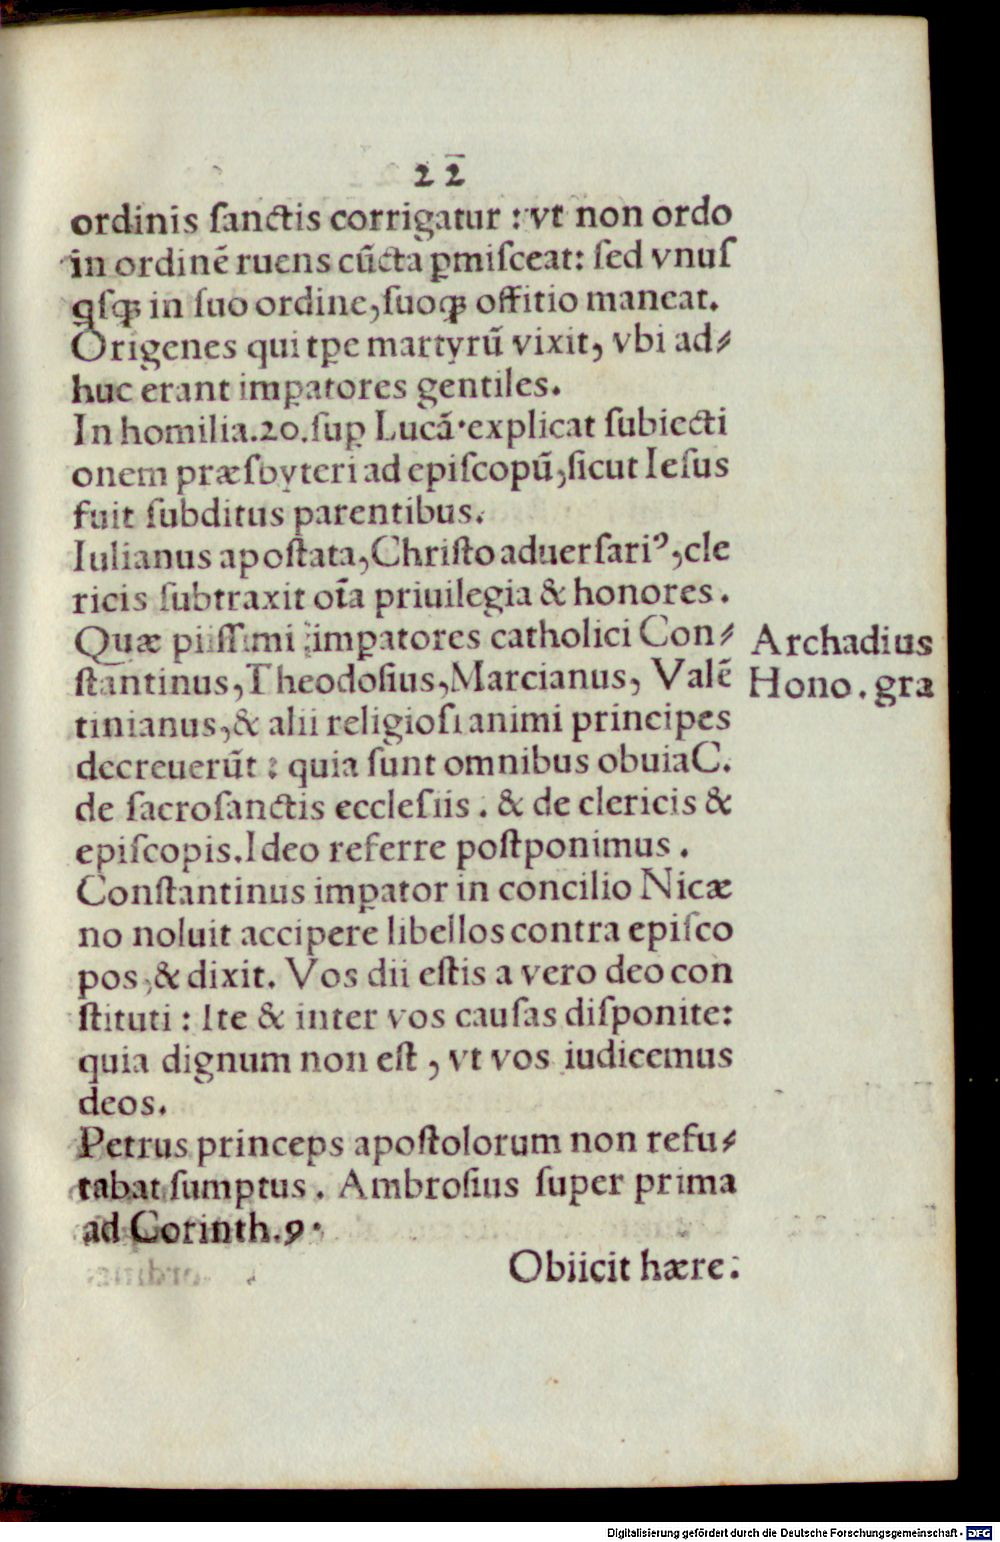 22
ordinis ſanctis corrigatur : vt non ordo
in ordinē ruens cūcta ꝑmiſceat: ſed vnuſ
qſqꝫ in ſuo ordine, ſuoqꝫ offitio maneat.
Origenes qui tꝑe martyrū vixit, vbi ad⸗
huc erant imꝑatores gentiles.
In homilia.20.ſuꝑ Lucā·explicat ſubiecti
onem præſbyteri ad epiſcopū, ſicut Ieſus
fuit ſubditus parentibus.
Iulianus apoſtata, Chriſto aduerſariꝰ, cle
ricis ſubtraxit oīa priuilegia & honores.
Quæ piiſſimi imꝑatores catholici Con⸗
ſtantinus, Theodoſius, Marcianus, Valē
tinianus, & alii religioſi animi principes
decreuerūt : quia ſunt omnibus obuia C.
de ſacroſanctis eccleſiis . & de clericis &
epiſcopis. Ideo referre poſtponimus .
Conſtantinus imꝑator in concilio Nicæ
no noluit accipere libellos contra epiſco
pos, & dixit. Vos dii eſtis a vero deo con
ſtituti : Ite & inter vos cauſas diſponite:
quia dignum non eſt , vt vos iudicemus
deos.
Petrus princeps apoſtolorum non refu⸗
tabat ſumptus . Ambroſius ſuper prima
ad Corinth.9·
Obiicit hære.
Archadius
Hono. gra
Digitalisierung gefördert durch die Deutsche Forschungsgemeinschaft - DFG